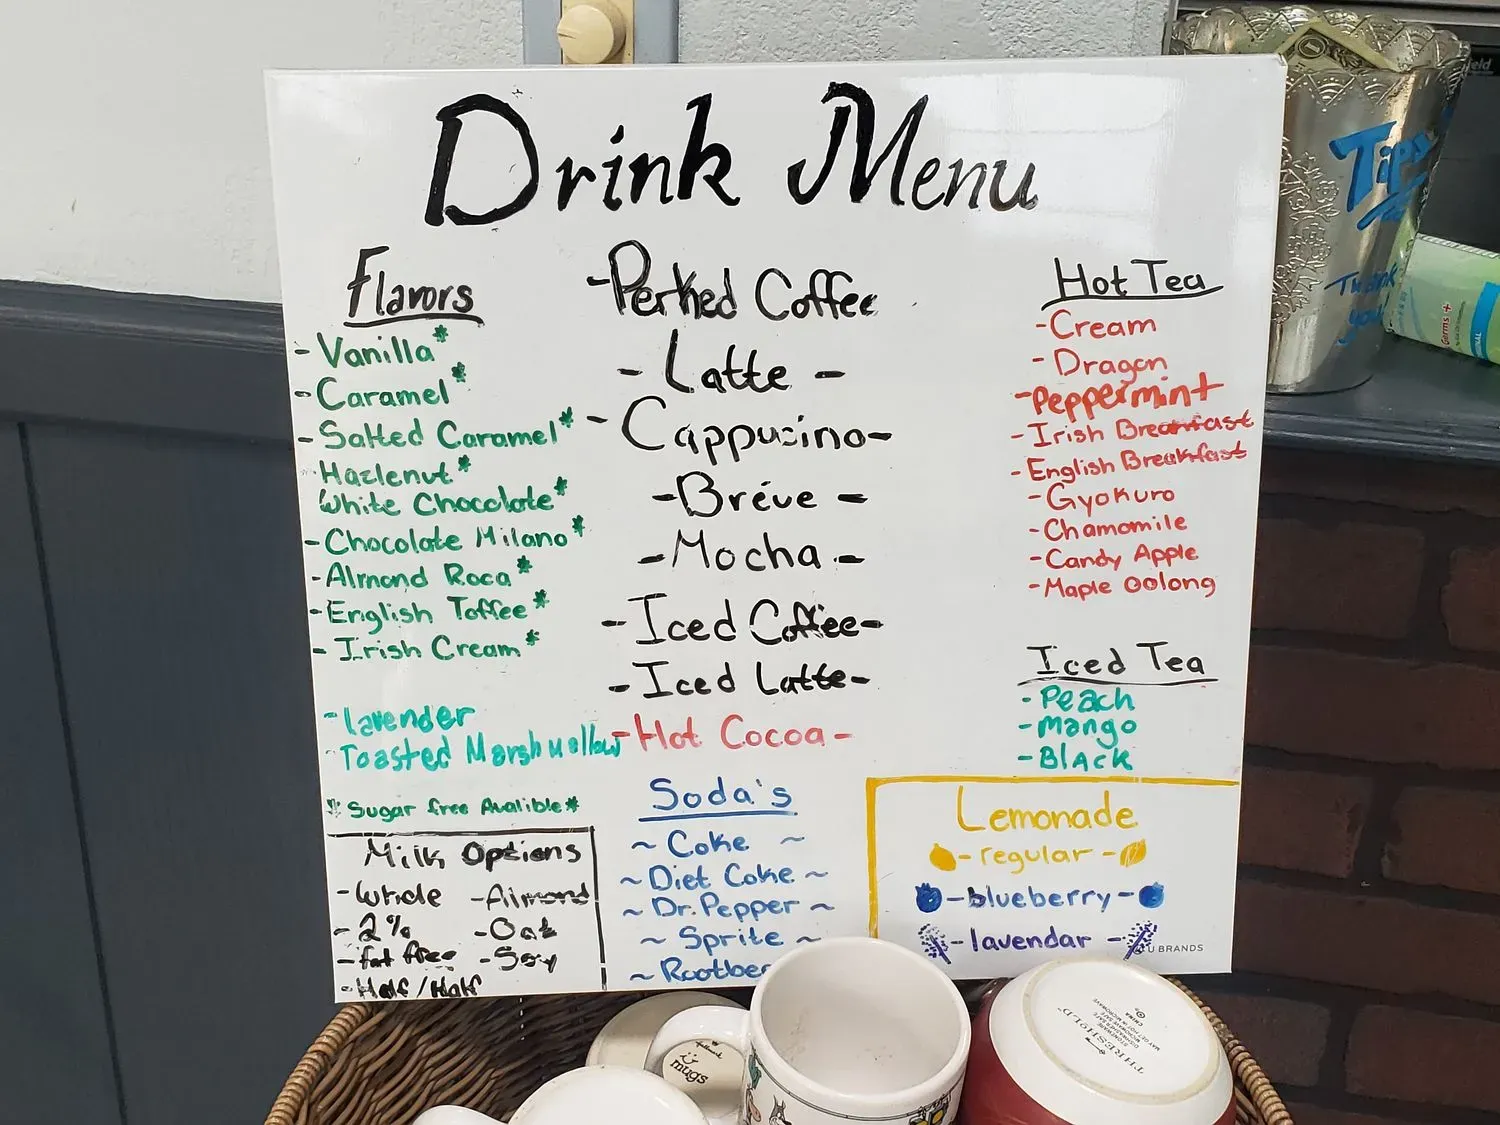 Drink Menu
Flavors
- Vanilla*
- Caramel*
- Salted Caramel*
- Hazlenut*
White Chocolate*
- Chocolate Milano*
- Almond Roca*
- English Toffee*
- Irish Cream*
- lavender
- Toasted Marshmallow
* Sugar free Avalible*
Milk Options
- Whole - Almond
- 2% - Oat
- fat free - Soy
- Half/Half
- Perked Coffee
- Latte -
- Cappucino -
- Bréve -
- Mocha -
- Iced Coffee -
- Iced Latte -
- Hot Cocoa -
Soda's
~ Coke ~
~ Diet Coke ~
~ Dr. Pepper ~
~ Sprite ~
~ Rootbee
Hot Tea
- Cream
- Dragon
- Peppermint
- Irish Breakfast
- English Breakfast
- Gyokuro
- Chamomile
- Candy Apple
- Maple Oolong
Iced Tea
- Peach
- Mango
- Black
Lemonade
- regular -
- blueberry -
- lavendar -
U BRANDS
Tips
Thank
you!
Germs +
Hallmark
mugs
THRESHOLD
STONEWARE
DISHWASHER SAFE
MICROWAVE SAFE
MAY GET HOT IN MICROWAVE
CHINA